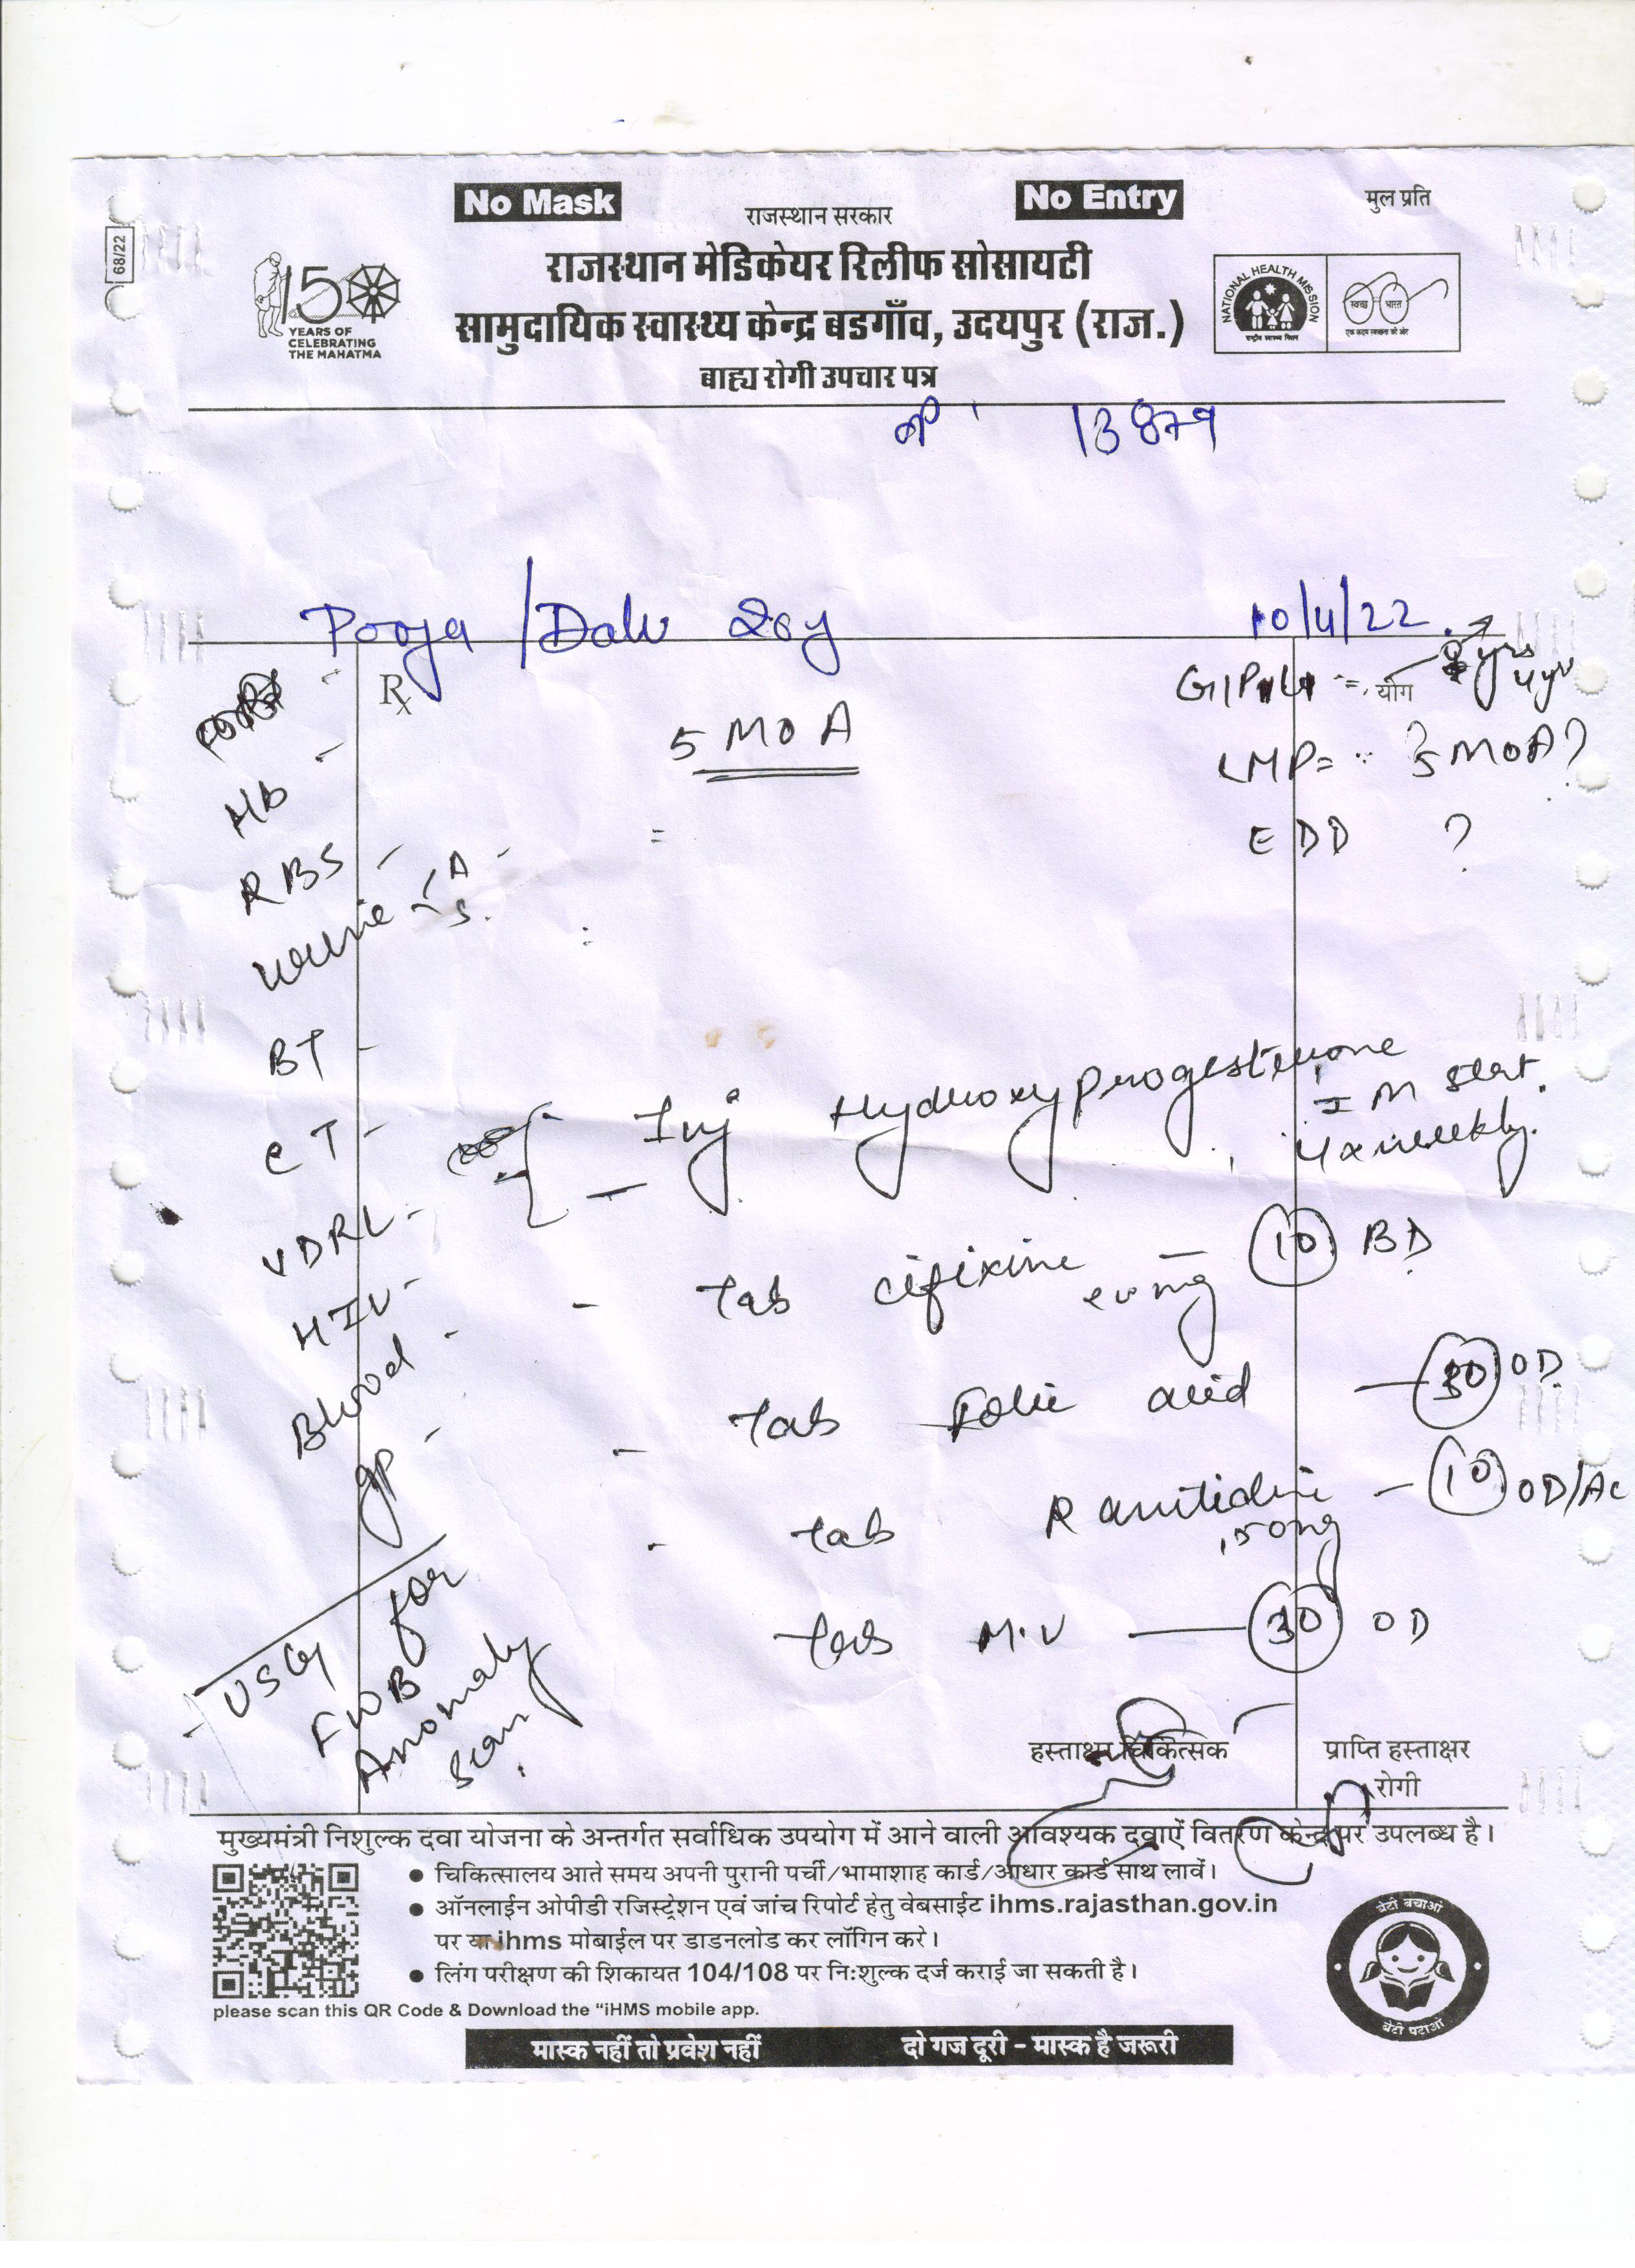 No Mask
राजस्थान सरकार
No Entry
मुल प्रति
68/22
राजस्थान मेडिकेयर रिलीफ सोसायटी
सामुदायिक स्वास्थ्य केन्द्र बडगाँव, उदयपुर (राज.)
बाह्य रोगी उपचार पत्र
150
YEARS OF
CELEBRATING
THE MAHATMA
NATIONAL HEALTH MISSION
राष्ट्रीय स्वास्थ्य मिशन
स्वच्छ भारत
एक कदम स्वच्छता की ओर
13879
Pooja / Dalu 20y
10/4/22
Rx
योग
4yr
5 MOA
LMP = 5 MOA?
EDD ?
Hb -
RBS -
Urine - A -
S.
BT -
CT -
VDRL -
HIV -
Blood -
gp -
USG for
FWB
Anomaly
Scan.
- Inj Hydroxyprogesterone
IM stat.
weekly.
- Tab cifixine - 10 BD
- Tab Folic acid - 30 OD
- Tab Ranitidine - 10 OD/AC
150mg
Tab M.V - 30 OD
हस्ताक्षर चिकित्सक
प्राप्ति हस्ताक्षर
रोगी
मुख्यमंत्री निशुल्क दवा योजना के अन्तर्गत सर्वाधिक उपयोग में आने वाली आवश्यक दवाऐं वितरण केन्द्र पर उपलब्ध है।
• चिकित्सालय आते समय अपनी पुरानी पर्ची/भामाशाह कार्ड/आधार कार्ड साथ लावें।
• ऑनलाईन ओपीडी रजिस्ट्रेशन एवं जांच रिपोर्ट हेतु वेबसाईट ihms.rajasthan.gov.in
पर या ihms मोबाईल पर डाडनलोड कर लॉगिन करे।
• लिंग परीक्षण की शिकायत 104/108 पर निःशुल्क दर्ज कराई जा सकती है।
please scan this QR Code & Download the “iHMS mobile app.
बेटी बचाओ
बेटी पढाओ
मास्क नहीं तो प्रवेश नहीं
दो गज दूरी - मास्क है जरूरी